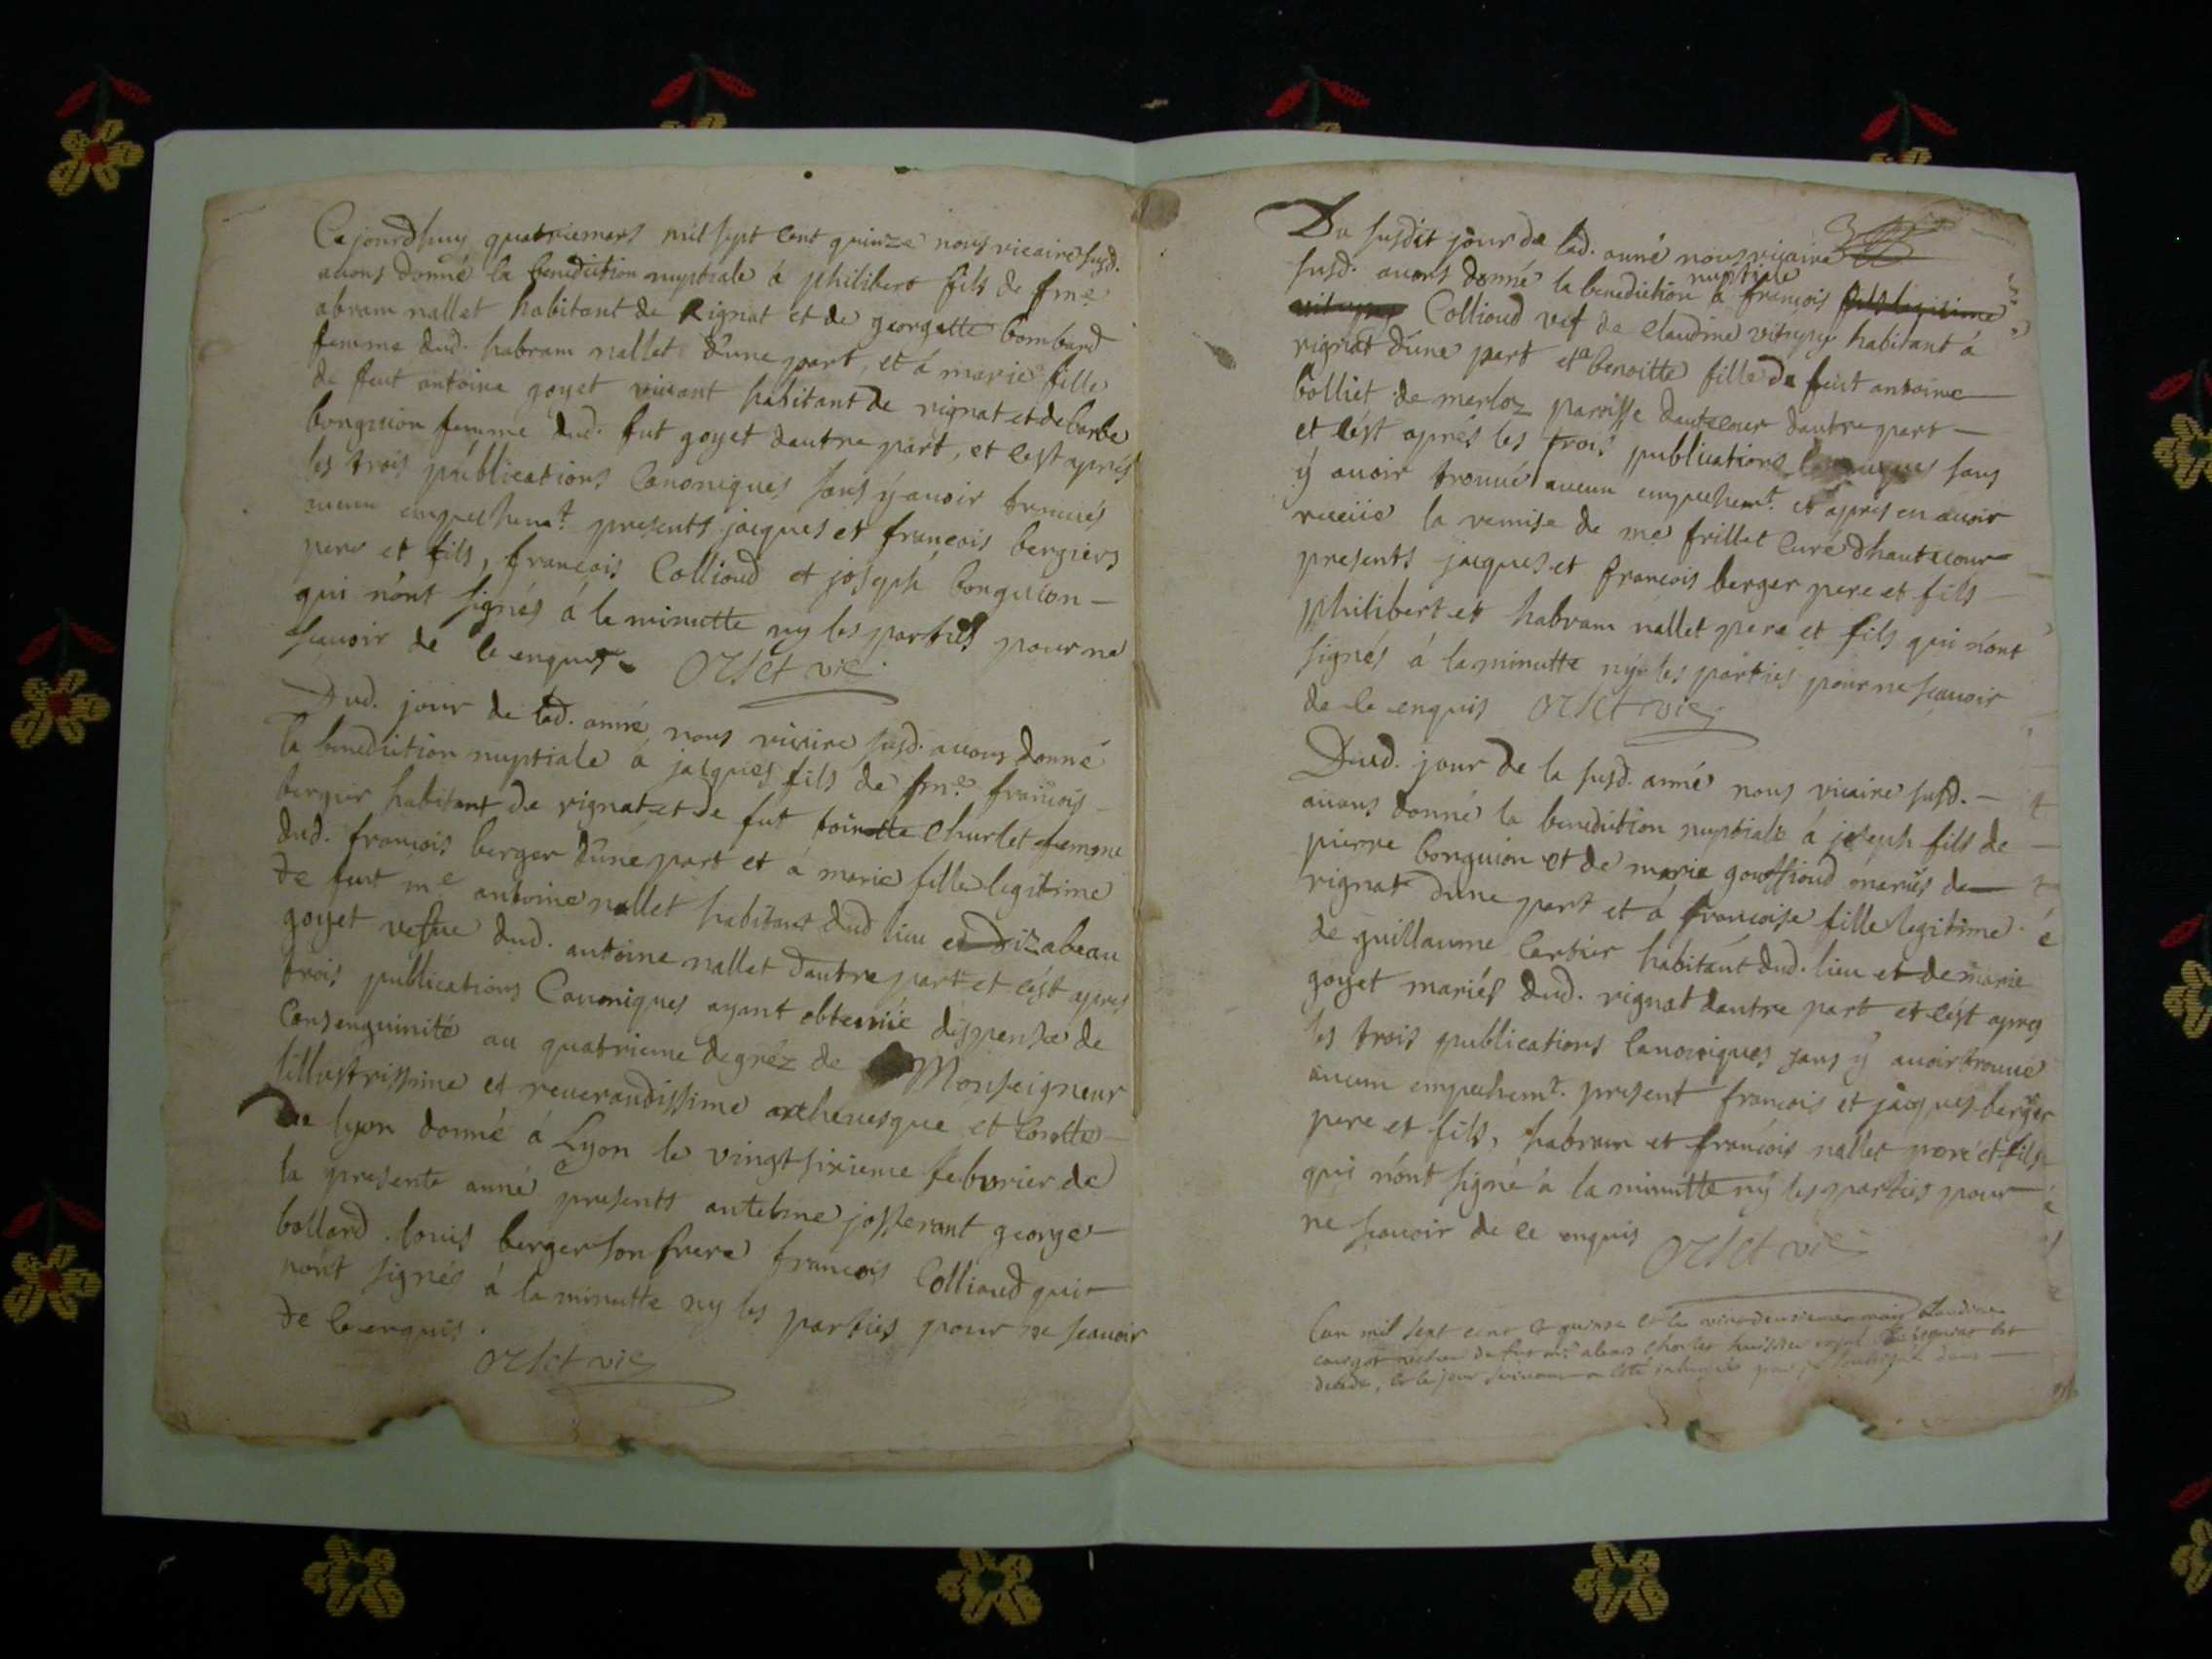 Cejourdhuy quatriemars mil sept cent quinze nous vicaire susd.
auons donné la benediction nuptiale á philibert fils de fr me
abram nallet habitant de Rignat et de georgette bombard
femme dud. habram nallet d'une part, et á marie fille
de feut antoine goyet viuant habitant de rignat et de barbe
bonguion femme dud. fut goyet dautre part, et cest aprés
les trois publications Canoniques sans ÿ auoir trouués
aucun empechemt. presents jacques et francois bergiers
pere et fils, francois Collioud et joseph bonguion —
qui n'ont signés á la minutte ny les parties pour ne
scauoir de ce enquis. Orset vic.
Dud. jour de lad. anné nous vicaire susd. auons donné
la benediction nuptiale á jacques fils de fme. francois
bergier habitant de rignat et de fut toinette Churlet femme
dud. francois berger d'une part et á marie fille legitime
de feut me antoine nallet habitant dud lieu et dizabeau
goyet vefue dud. antoine nallet dautre part et cést apres
trois publications Canoniques ayant obtenüe dispense de
Consenguinité au quatrieme degréz de Monseigneur
lillustrissime et reuerandissime archeuesque et Comtte
de lyon donné á Lyon le vingt sixieme feburier de
la presente anné presents antelme josserant george
bollard. louis berger son frere francois Collioud qui
nont signés á la minutte ny les parties pour ne scauoir
de ce enquis.
Orset vic
Du susdit jour de lad. anné nous vicaire
susd. auons donné la benediction nuptiale á francois fils legitime
Collioud vef de Claudine vitupier habitant á
rignat d'une part et a benoitte fille de feut antoine
bolliet de merloz parrisse dautecour dautre part —
et cést aprés les trois publications sans
ÿ auoir trouué aucun empechemt. et apres en auoir
receüe la remise de me frillet Curé dhautecour
presents jacques et francois berger pere et fils
philibert et habram nallet pere et fils qui n'ont
signés á la minutte nÿ les parties pour ne scauoir
de ce enquis Orset vic.
Dud. jour de la susd. anné nous vicaire susd. —
auons donné la benediction nuptiale á joseph fils de
pierre bonguion et de marie gouffioud mariés de
rignat d'une part et á francoise fille legitime
de guillaume Cartier habitant dud. lieu et de marie
goyet mariés dud. rignat dautre part et cést apres
les trois publications Canoniques sans ÿ auoir trouué
aucun empechemt. present francois et jacques berger
pere et fils, habram et francois nallet pere et fils
qui n'ont signé á la minutte nÿ les parties pour
ne scauoir de ce enquis Orset vic
Lan mil sept cent et quinze et le vint deusieme mars Claudine
de fut mre Charlet huissier royal est
decede, et le jour suiuant a été par dans